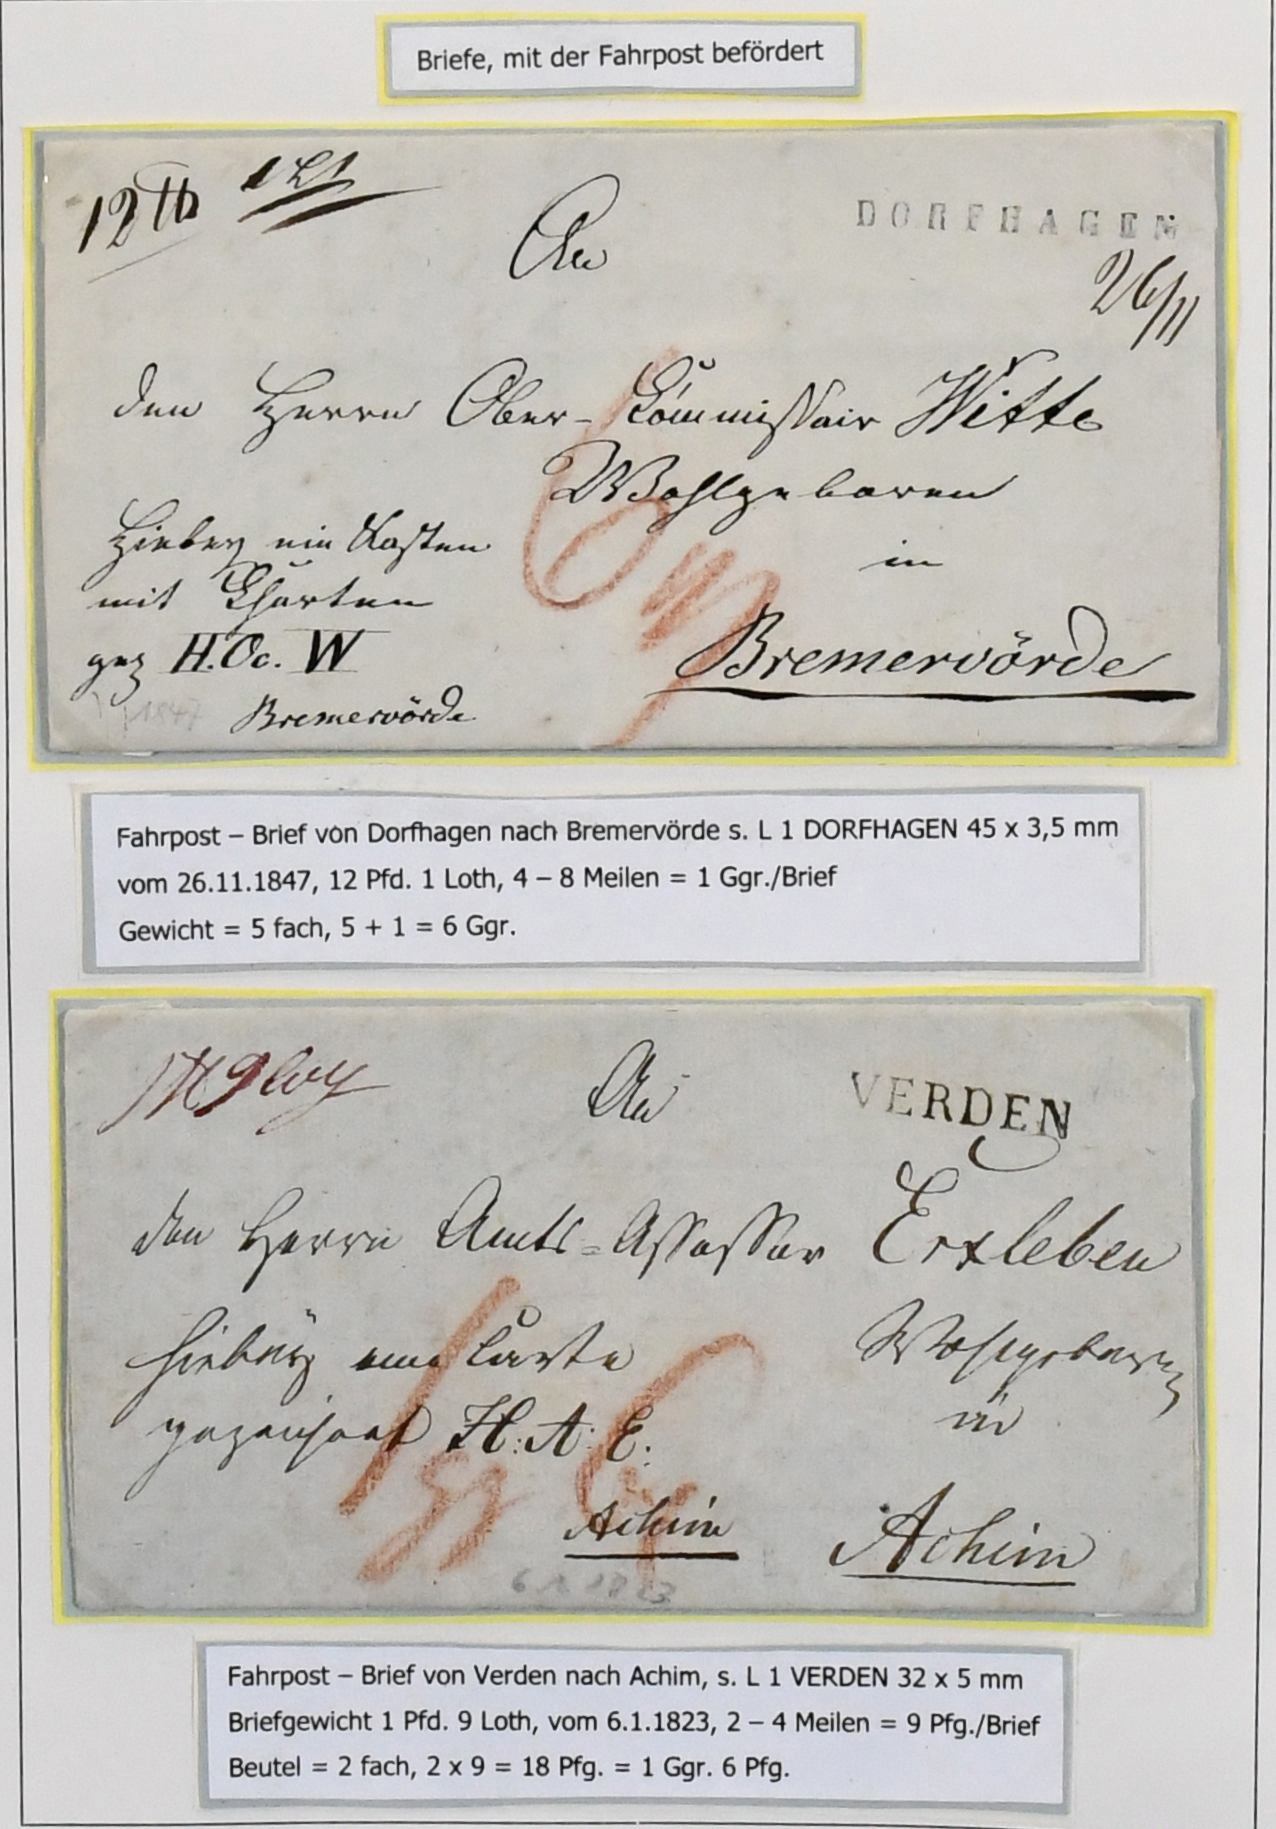 Briefe, mit der Fahrpost befördert
12 ℔ 1 Lt
An
DORFHAGEN
26/11
den Herrn Ober-Commissair Witte
Wohlgeboren
in
Bremervörde
Hiebey ein Kasten
mit Charten
gez H. Oc. W
Bremervörde
1847
6
Fahrpost – Brief von Dorfhagen nach Bremervörde s. L 1 DORFHAGEN 45 x 3,5 mm
vom 26.11.1847, 12 Pfd. 1 Loth, 4 – 8 Meilen = 1 Ggr./Brief
Gewicht = 5 fach, 5 + 1 = 6 Ggr.
1 ℔ 9 Loth
An
VERDEN
den Herrn Amts-Assessor Erxleben
Wohlgeboren
in
Achim
hiebey eine Carte
gezeichnet H. A. E.
Achim
1 6
6 1 1823
Fahrpost – Brief von Verden nach Achim, s. L 1 VERDEN 32 x 5 mm
Briefgewicht 1 Pfd. 9 Loth, vom 6.1.1823, 2 – 4 Meilen = 9 Pfg./Brief
Beutel = 2 fach, 2 x 9 = 18 Pfg. = 1 Ggr. 6 Pfg.